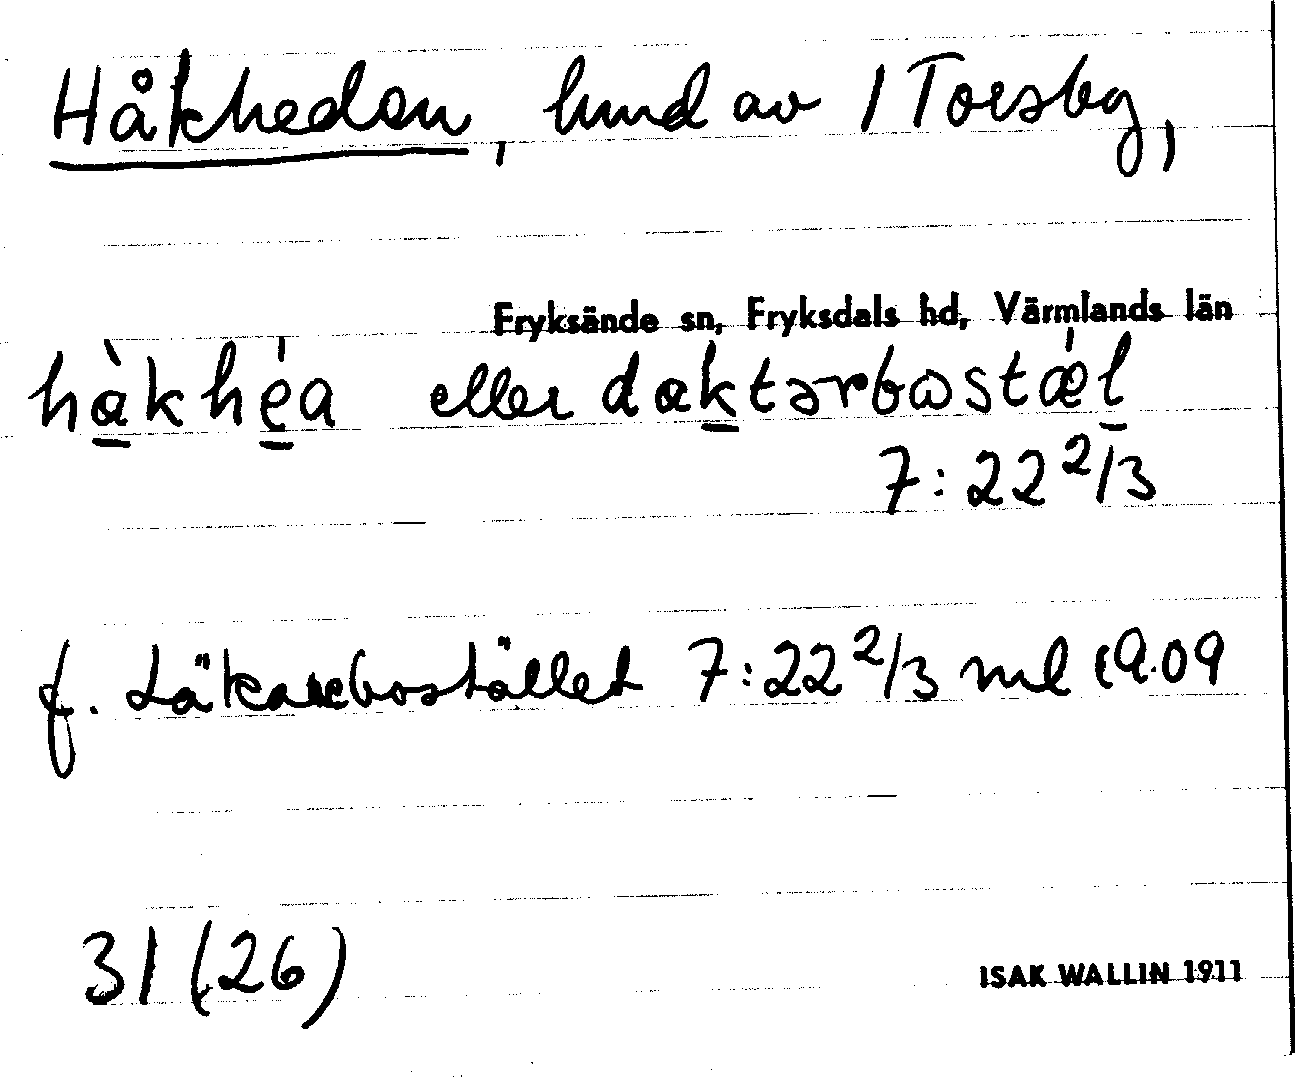 Håkheden, lund av 1 Torsby,
Fryksände sn, Fryksdals hd, Värmlands län
hàkhéa eller doktərbostæl
7:22 2/3
f. Läkarebostället 7:22 2/3 ml 19.09
31 (26)
ISAK WALLIN 1911